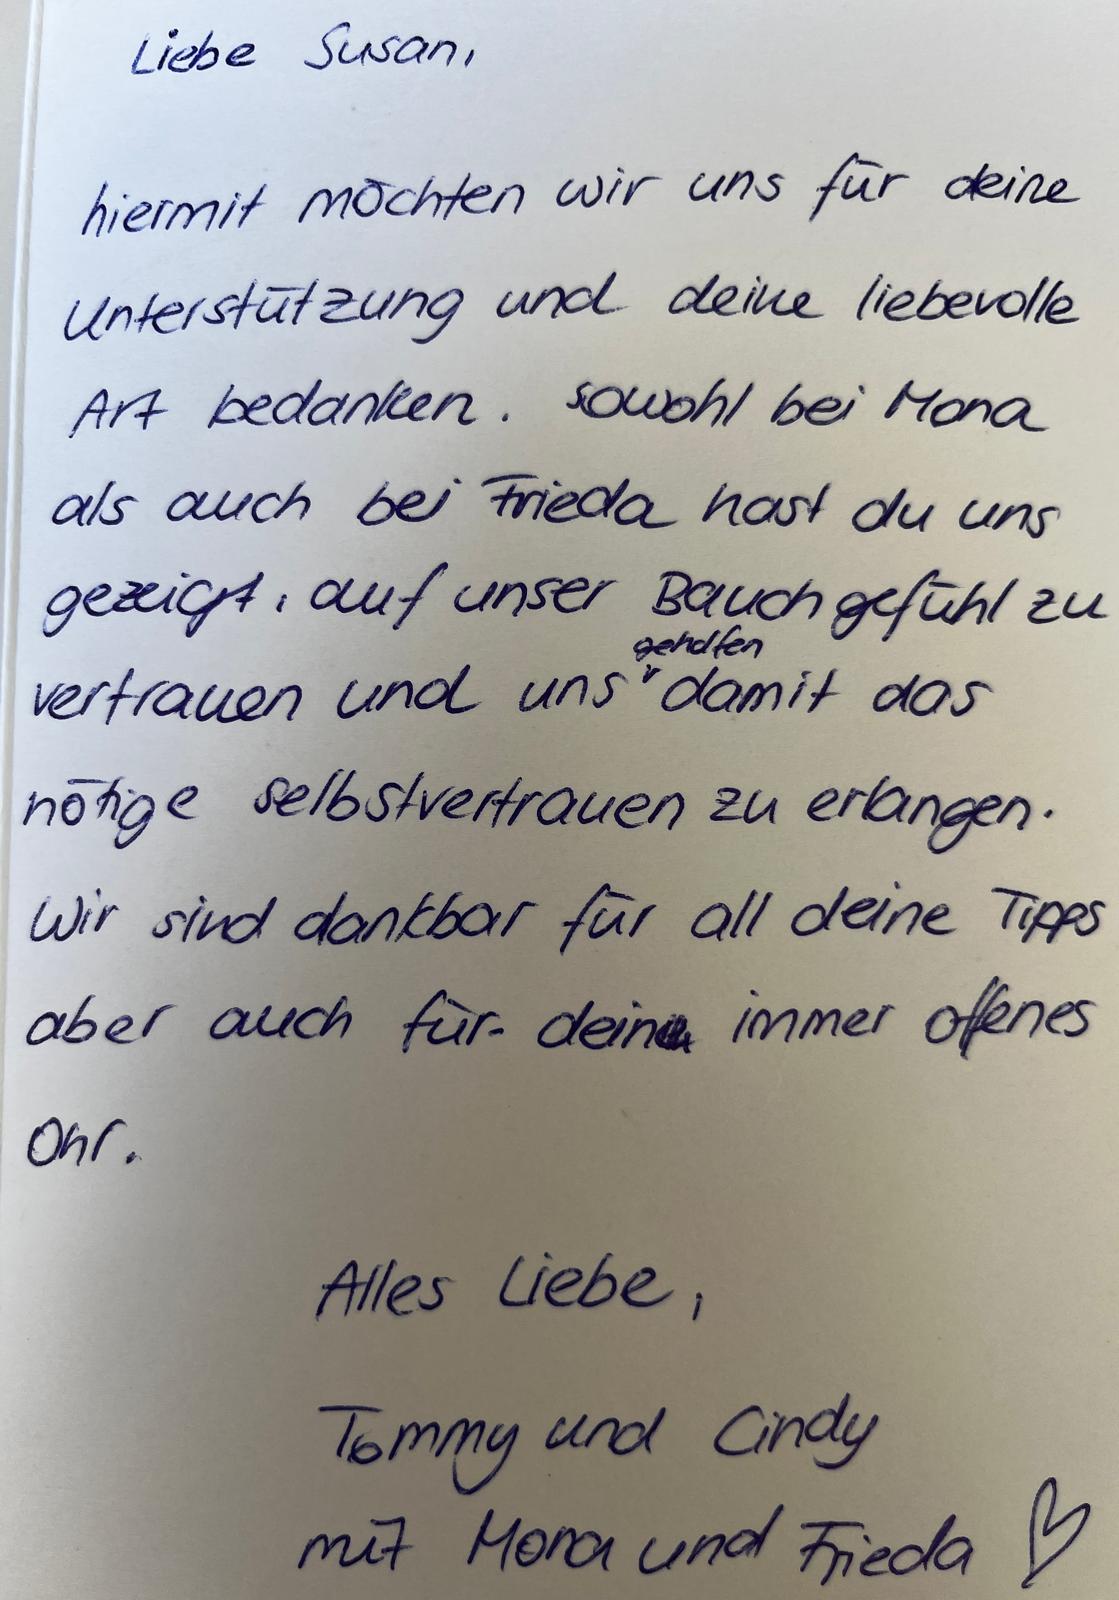 Liebe Susan,
hiermit möchten wir uns für deine
Unterstützung und deine liebevolle
Art bedanken. sowohl bei Mona
als auch bei Frieda hast du uns
gezeigt, auf unser Bauchgefühl zu
geholfen
vertrauen und uns damit das
nötige selbstvertrauen zu erlangen.
Wir sind dankbar für all deine Tipps
aber auch für dein immer offenes
Ohr.
Alles Liebe,
Tommy und Cindy
mit Mona und Frieda